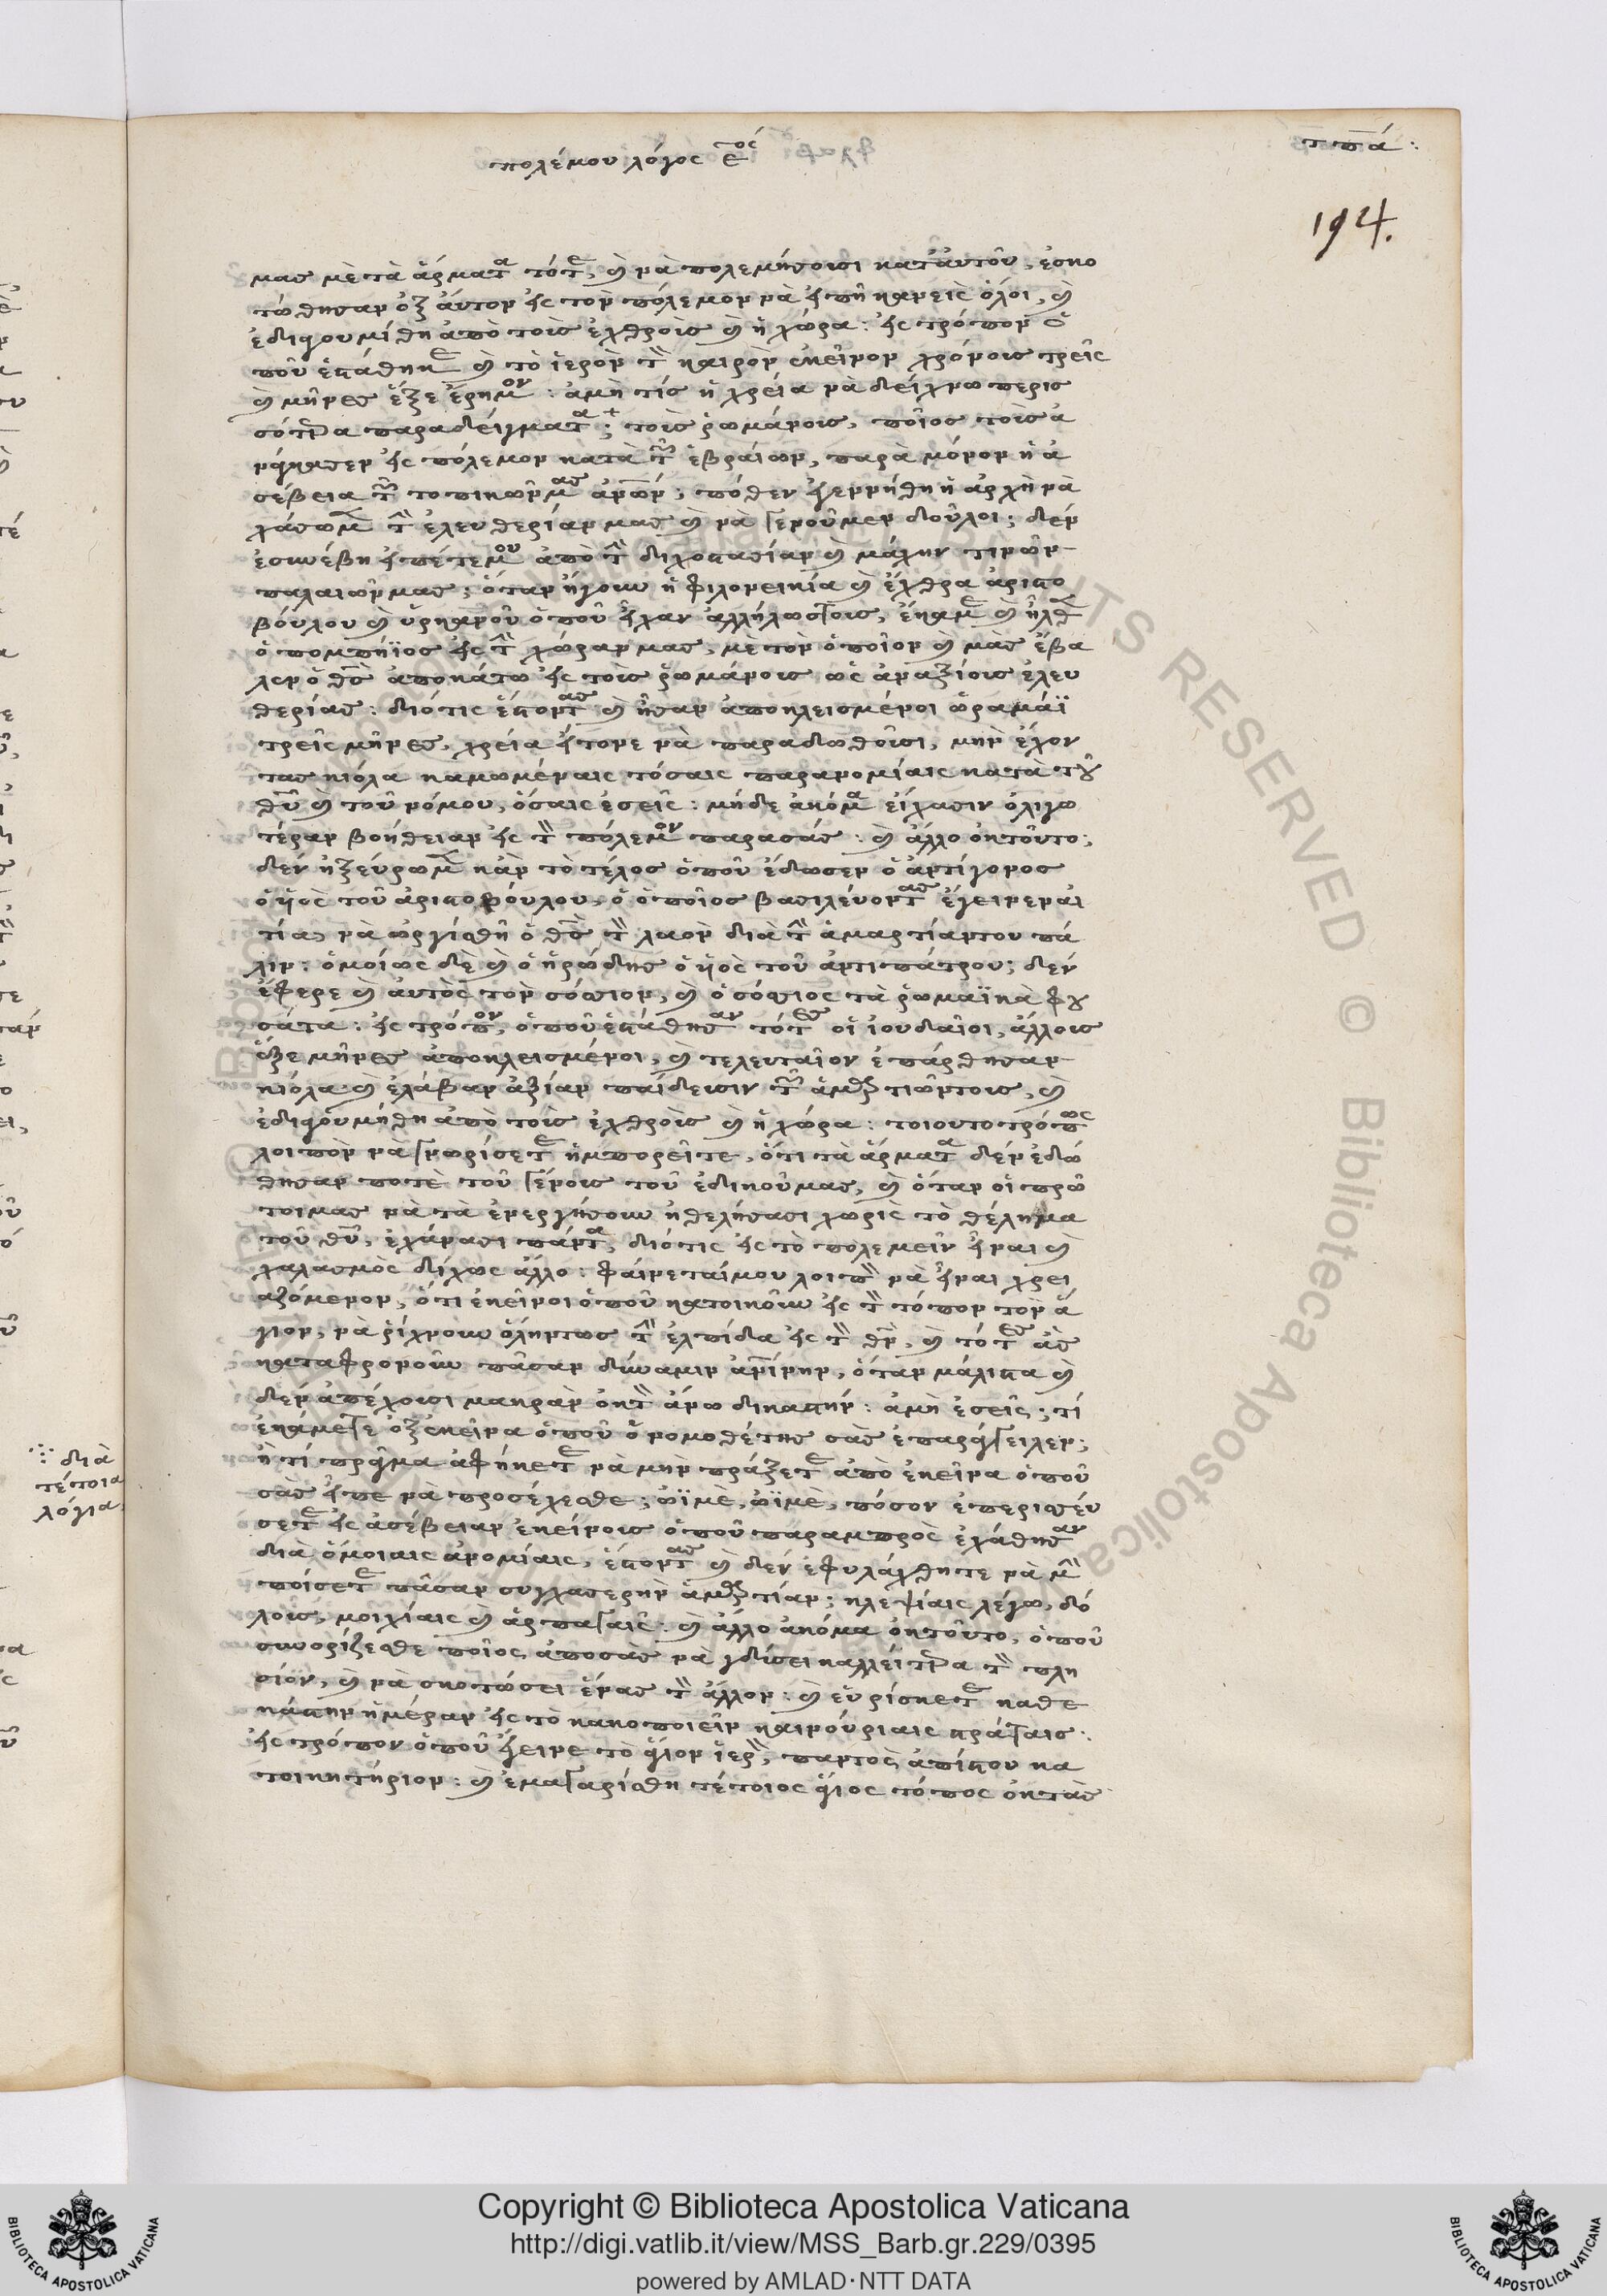 πολέμου λόγος ε^ος
τπά:
194.
μας μὲ τὰ ἅρματα τότε, καὶ νὰ πολεμήσουσι κατ' αὐτοῦ, ἐσκο
τώθησαν ὀξ αὐτον εἰς τον πόλεμον νὰ εἰπῆ κανεὶς ὅλοι, καὶ
ἐδιγουμίθη ἀπὸ τοὺς ἐχθροὺς καὶ ἡ χώρα: εἰς τρόπον ὁ
ποῦ ἐστάθηκε καὶ τὸ ἱερὸν τὸν καιρὸν ἐκεῖνον χρόνους τρεῖς
καὶ μῆνες ἕξε ἔρημον: ἀμὴ τίς ἡ χρεία νὰ δείχνω περισ
σότερα παραδείγματα; τοὺς ῥωμάνους, ποῖος τοὺς ἐ
κάλεσεν εἰς πόλεμον κατὰ τῶν ἑβραίων, παρὰ μόνον ἡ ἀ
σέβεια τῶν τοπικῶν μας ἀνων; πόθεν ἐγεννήθη ἡ ἀρχὴ νὰ
χάσωμε τὴν ἐλευθερίαν μας καὶ νὰ γενοῦμεν δοῦλοι; δέν
ἐσυνέβη εἰπέτε μου ἀπὸ τὴν διχοστασίαν καὶ μάχην τινῶν
παλαιῶν μας; ὅταν ἤγουν ἡ φιλονεικία καὶ ἔχθρα ἀριστο
βούλου καὶ ὑρκανοῦ ὁποῦ εἶχαν ἀλλήλως τους, ἔκαμε καὶ ἦλθε
ὁ πομπήϊος εἰς τὴν χώραν μας, μὲ τὸν ὁποῖον καὶ μᾶς ἔβα
λεν ὁ θς ἀποκάτω εἰς τοὺς ῥωμάνους ὡς ἀναξίους ἐλευ
θερίας: διότις ἔστοντας καὶ ἦσαν ἀποκλεισμένοι ὧραμάϊ
τρεῖς μῆνες, χρεία ἤτονε νὰ παραδωθοῦσι, μὴν ἔχον
τας κιόλα καμωμέναις τόσαις παρανομίαις κατὰ τοῦ
θῦ καὶ τοῦ νόμου, ὅσαις ἐσεῖς: μήδε ἀκόμα εἴχασιν ὀλιγω
τέραν βοήθειαν εἰς τὸν πόλεμον παρασᾶς: καὶ ἄλλο ὀκτοῦτο;
δέν ἠξεύρωμε κἂν τὸ τέλος ὁποῦ ἔδωσεν ὁ ἀντίγονος
ὁ υἱὸς τοῦ ἀριστοβούλου, ὁ ὁποῖος βασιλεύοντας ἔγεινεν αἰ
τία, νὰ ὠργισθῆ ὁ θς τὸν λαὸν διὰ τὴν ἁμαρτίαντου πά
λιν: ὁμοίως δὲ καὶ ὁ ἡρώδης ὁ υἱὸς τοῦ ἀντιπάτρου; δέν
ἔφερε καὶ αὐτὸς τὸν σόσιον, καὶ ὁ σόσιος τὰ ῥωμαϊκὰ φου
σάτα: εἰς τρόπον, ὁποῦ ἐστάθησαν τότες οἱ ἰουδαῖοι, ἄλλους
ἕξε μῆνες ἀποκλεισμένοι, καὶ τελευταῖον ἐπάρθησαν
κιόλα καὶ ἐλάβαν ἀξίαν παίδευσιν τῶν ἁμαρτιῶντους, καὶ
ἐδιγουμήθη ἀπὸ τοὺς ἐχθροὺς καὶ ἡ χώρα: τοιουτοτρόπως
λοιπὸν νὰ γνωρίσετε ἠμπορεῖτε, ὅτι τὰ ἅρματα δέν ἐδώ
θησαν ποτὲ τοῦ γένους τοῦ ἐδικοῦ μας, καὶ ὅταν οἱ πρῶ
τοι μας νὰ τὰ ἐνεργήσουν ἠθελήσασι χωρὶς τὸ θέλημα
τοῦ θῦ, ἐχάνασι πάντα, διότις εἰς τὸ πολεμεῖν εἶναι καὶ
χαλασμὸς δίχως ἄλλο: φαίνεταίμου λοιπὸν νὰ εἶναι χρει
αζόμενον, ὅτι ἐκεῖνοι ὁποῦ κατοικοῦν εἰς τὸν τόπον τὸν ἅ
γιον, νὰ ῥίχνουν ὅλην τως τὴν ἐλπίδα εἰς τὸν θν, καὶ τότες ἂς
καταφρονοῦν πᾶσαν δύναμιν ἀνίνην, ὅταν μάλιστα καὶ
δέν ἀπέχουσι μακρὰν ὀκτὸν ἄνω δικαστήν: ἀμὴ ἐσεῖς; τί
ἐκάμετε ὀξ ἐκεῖνα ὁποῦ ὁ νομοθέτης σᾶς ἐπαράγγειλεν;
ἢ τί πράγμα ἀφήκετε νὰ μὴν πράξετε ἀπὸ ἐκεῖνα ὁποῦ
σᾶς εἶπε νὰ προσέχεσθε; ὠϊμὲ, ὠϊμὲ, πόσον ἐπερισσέυ
σετε εἰς ἀσέβειαν ἐκείνους ὁποῦ παραμπρὸς ἐχάθησαν
διὰ ὅμοιαις ἀνομίαις, ἔστοντας καὶ δέν ἐφυλάχθητε νὰ μὴν
ποίσετε πᾶσαν συγχασερὴν ἁμαρτίαν; κλεψίαις λέγω, δό
λους, μοιχίαις καὶ ἁρπαγαῖς: καὶ ἄλλο ἀκόμα ὀκτοῦτο, ὁποῦ
συνορίζεσθε ποῖος ἀποσᾶς νὰ γδύσει καλλείτερα τὸν πλη
σίον, καὶ νὰ σκοτώσει ἕνας τὸν ἄλλον: καὶ εὑρίσκετε καθε
κάστην ἡμέραν εἰς τὸ κακοποιεῖν καινούριαις στράταις:
εἰς τρόπον ὁποῦ ἔγεινε τὸ ἅγιον ἱερὸν, παντὸς ἀπίστου κα
τοικητήριον: καὶ ἐμαγαρίσθη τέτοιος ἅγιος τόπος ὀκτὰς
διὰ
τέτοια
λόγια
Copyright © Biblioteca Apostolica Vaticana
http://digi.vatlib.it/view/MSS_Barb.gr.229/0395
powered by AMLAD·NTT DATA